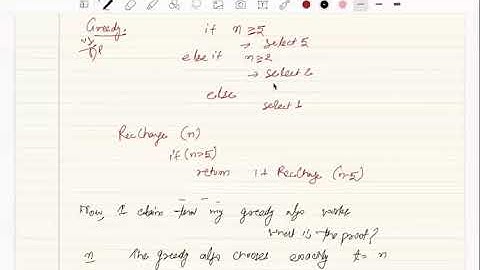 Greedy:
if n ≥ 5
→ select 5
else if n ≥ 2
→ select 2
else
select 1
RecChange (n)
if (n>5)
return 1 + RecChange (n-5)
Now, I claim that my greedy algo works
what is the proof?
n The greedy algo chooses exactly t = n